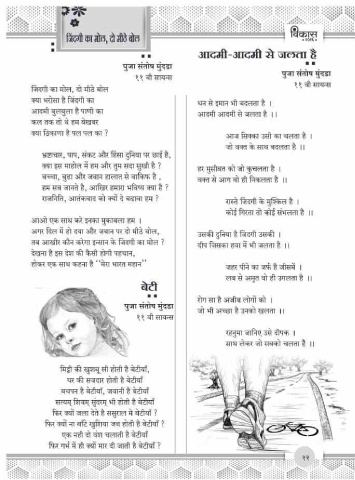 जिंदगी का मोल, दो मीठे बोल
पुजा संतोष मुंदडा
११ वी सायन्स
जिंदगी का मोल, दो मीठे बोल
क्या भरोसा है जिंदगी का
आदमी बुलबुला है पाणी का
कल तक तो थे हम बेखबर
क्या ठिकाणा है पल पल का ?
भ्रष्टाचार, पाप, संकट और हिंसा दुनिया पर छाई है,
क्या इस माहोल में हम और तुम सदा सुखी है ?
बच्चा, बुढा और जवान हालात से वाकिफ है ,
हम सब जानते है, आखिर हमारा भविष्य क्या है ?
राजनिति, आतंकवाद को क्यों दे बढावा हम ?
आओ एक साथ करे इनका मुकाबला हम ।
अगर दिल में हो दया और जबान पर दो मीठे बोल,
तब आखीर कौन करेगा इन्सान के जिंदगी का मोल ?
देखना है इस देश की कैसी होगी पहचान,
होकर एक साथ कहना है "मेरा भारत महान"
बेटी
पुजा संतोष मुंदडा
११ वी सायन्स
मिट्टी की खुशबू सी होती है बेटीयाँ
घर की सजदार होती है बेटीयाँ
बचपन है बेटीयाँ, जवानी है बेटीयाँ
सत्यम् शिवम् सुंदरम् भी होती है बेटीयाँ
फिर क्यों जला देते है ससुराल मे बेटीयाँ ?
फिर क्यों ना बांटे खुशिया जब होती है बेटीयाँ ?
एक नही दो वंश चलाती है बेटीयाँ
फिर गर्भ में ही क्यों मार दी जाती है बेटीयाँ ?
विकास
आदमी-आदमी से जलता है
पुजा संतोष मुंदडा
११ वी सायन्स
धन से इमान भी बदलता है ।
आदमी आदमी से जलता है ।।
आज सिक्का उसी का चलता है ।
जो वक्त के साथ बदलता है ।।
हर मुसीबत को जो कुचलता है ।
वक्त से आग वो ही निकलता है ।।
रास्ते जिंदगी के मुश्किल है ।
कोई गिरता तो कोई संभलता है ।।
उसकी दुनिया है जिंदगी उसकी ।
दीप जिसका हवा में भी जलता है ।।
जहर पीने का जर्फ है जीसमें ।
लब से अमृत वो ही उगलता है ।।
रोग सा है अजीब लोगों को ।
जो भी अच्छा है उनको खलता ।।
रहनुमा जानिए उसे दीपक ।
साथ लेकर जो सबको चलता है ।।
२२